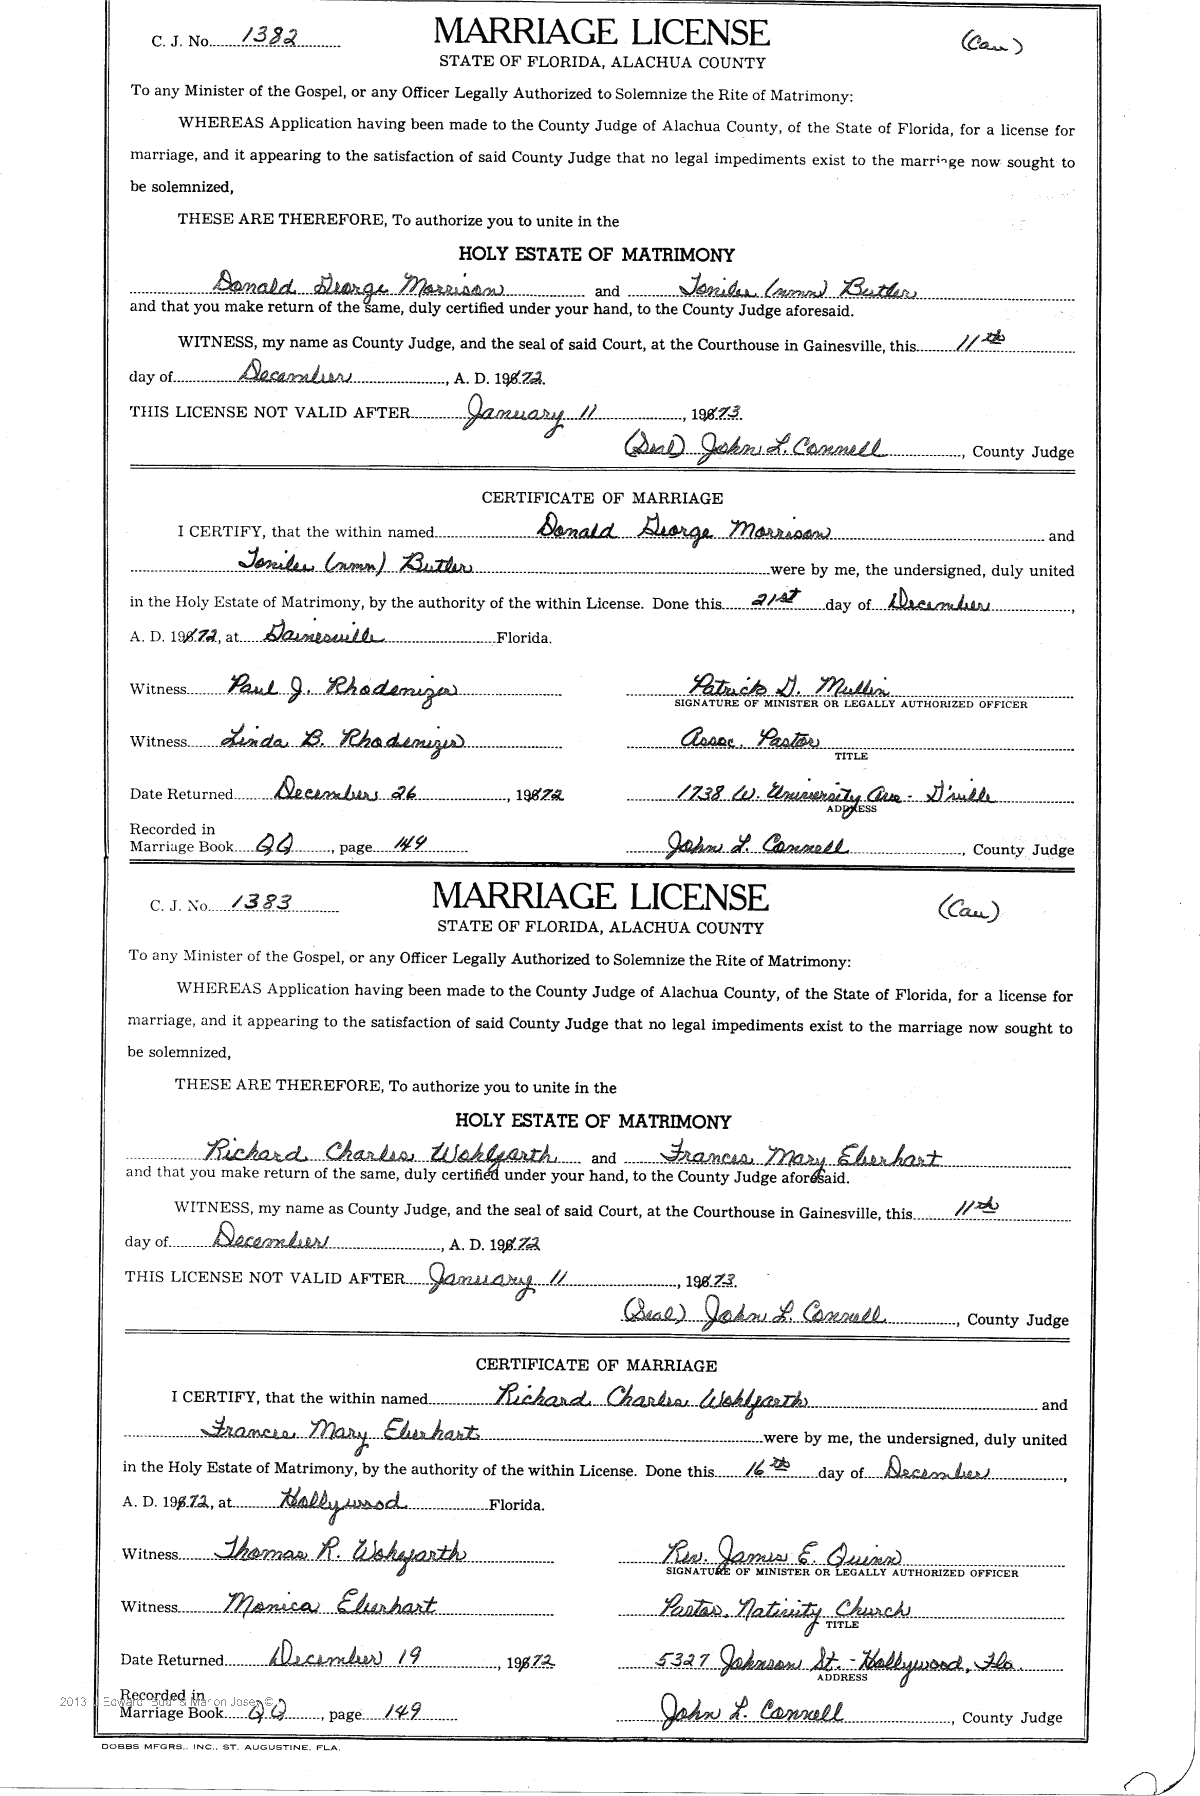 C. J. No. 1382 MARRIAGE LICENSE (Cau)
STATE OF FLORIDA, ALACHUA COUNTY
To any Minister of the Gospel, or any Officer Legally Authorized to Solemnize the Rite of Matrimony:
WHEREAS Application having been made to the County Judge of Alachua County, of the State of Florida, for a license for
marriage, and it appearing to the satisfaction of said County Judge that no legal impediments exist to the marriage now sought to
be solemnized,
THESE ARE THEREFORE, To authorize you to unite in the
HOLY ESTATE OF MATRIMONY
Donald George Morrison and Tonilee (nmn) Butler
and that you make return of the same, duly certified under your hand, to the County Judge aforesaid.
WITNESS, my name as County Judge, and the seal of said Court, at the Courthouse in Gainesville, this 11th
day of December, A. D. 1972.
THIS LICENSE NOT VALID AFTER January 11, 1973.
(Seal) John L. Connell, County Judge
CERTIFICATE OF MARRIAGE
I CERTIFY, that the within named Donald George Morrison and
Tonilee (nmn) Butler were by me, the undersigned, duly united
in the Holy Estate of Matrimony, by the authority of the within License. Done this 21st day of December,
A. D. 1972, at Gainesville Florida.
Witness Paul J. Rhodenizer Patrick D. Mullin
SIGNATURE OF MINISTER OR LEGALLY AUTHORIZED OFFICER
Witness Linda B. Rhodenizer Assoc. Pastor
TITLE
Date Returned December 26, 1972 1738 W. University Ave - G'ville
ADDRESS
Recorded in
Marriage Book QQ, page 149 John L. Connell, County Judge
C. J. No. 1383 MARRIAGE LICENSE (Cau)
STATE OF FLORIDA, ALACHUA COUNTY
To any Minister of the Gospel, or any Officer Legally Authorized to Solemnize the Rite of Matrimony:
WHEREAS Application having been made to the County Judge of Alachua County, of the State of Florida, for a license for
marriage, and it appearing to the satisfaction of said County Judge that no legal impediments exist to the marriage now sought to
be solemnized,
THESE ARE THEREFORE, To authorize you to unite in the
HOLY ESTATE OF MATRIMONY
Richard Charles Wohlgarth and Frances Mary Eberhart
and that you make return of the same, duly certified under your hand, to the County Judge aforesaid.
WITNESS, my name as County Judge, and the seal of said Court, at the Courthouse in Gainesville, this 11th
day of December, A. D. 1972
THIS LICENSE NOT VALID AFTER January 11, 1973.
(Seal) John L. Connell, County Judge
CERTIFICATE OF MARRIAGE
I CERTIFY, that the within named Richard Charles Wohlgarth and
Frances Mary Eberhart were by me, the undersigned, duly united
in the Holy Estate of Matrimony, by the authority of the within License. Done this 16th day of December,
A. D. 1972, at Hollywood Florida.
Witness Thomas R. Wohlgarth Rev. James E. Quinn
SIGNATURE OF MINISTER OR LEGALLY AUTHORIZED OFFICER
Witness Monica Eberhart Pastor, Nativity Church
TITLE
Date Returned December 19, 1972 5327 Johnson St. - Hollywood, Fla.
ADDRESS
Recorded in
Marriage Book QQ, page 149 John L. Connell, County Judge
DOBBS MFGRS., INC., ST. AUGUSTINE, FLA.
2013